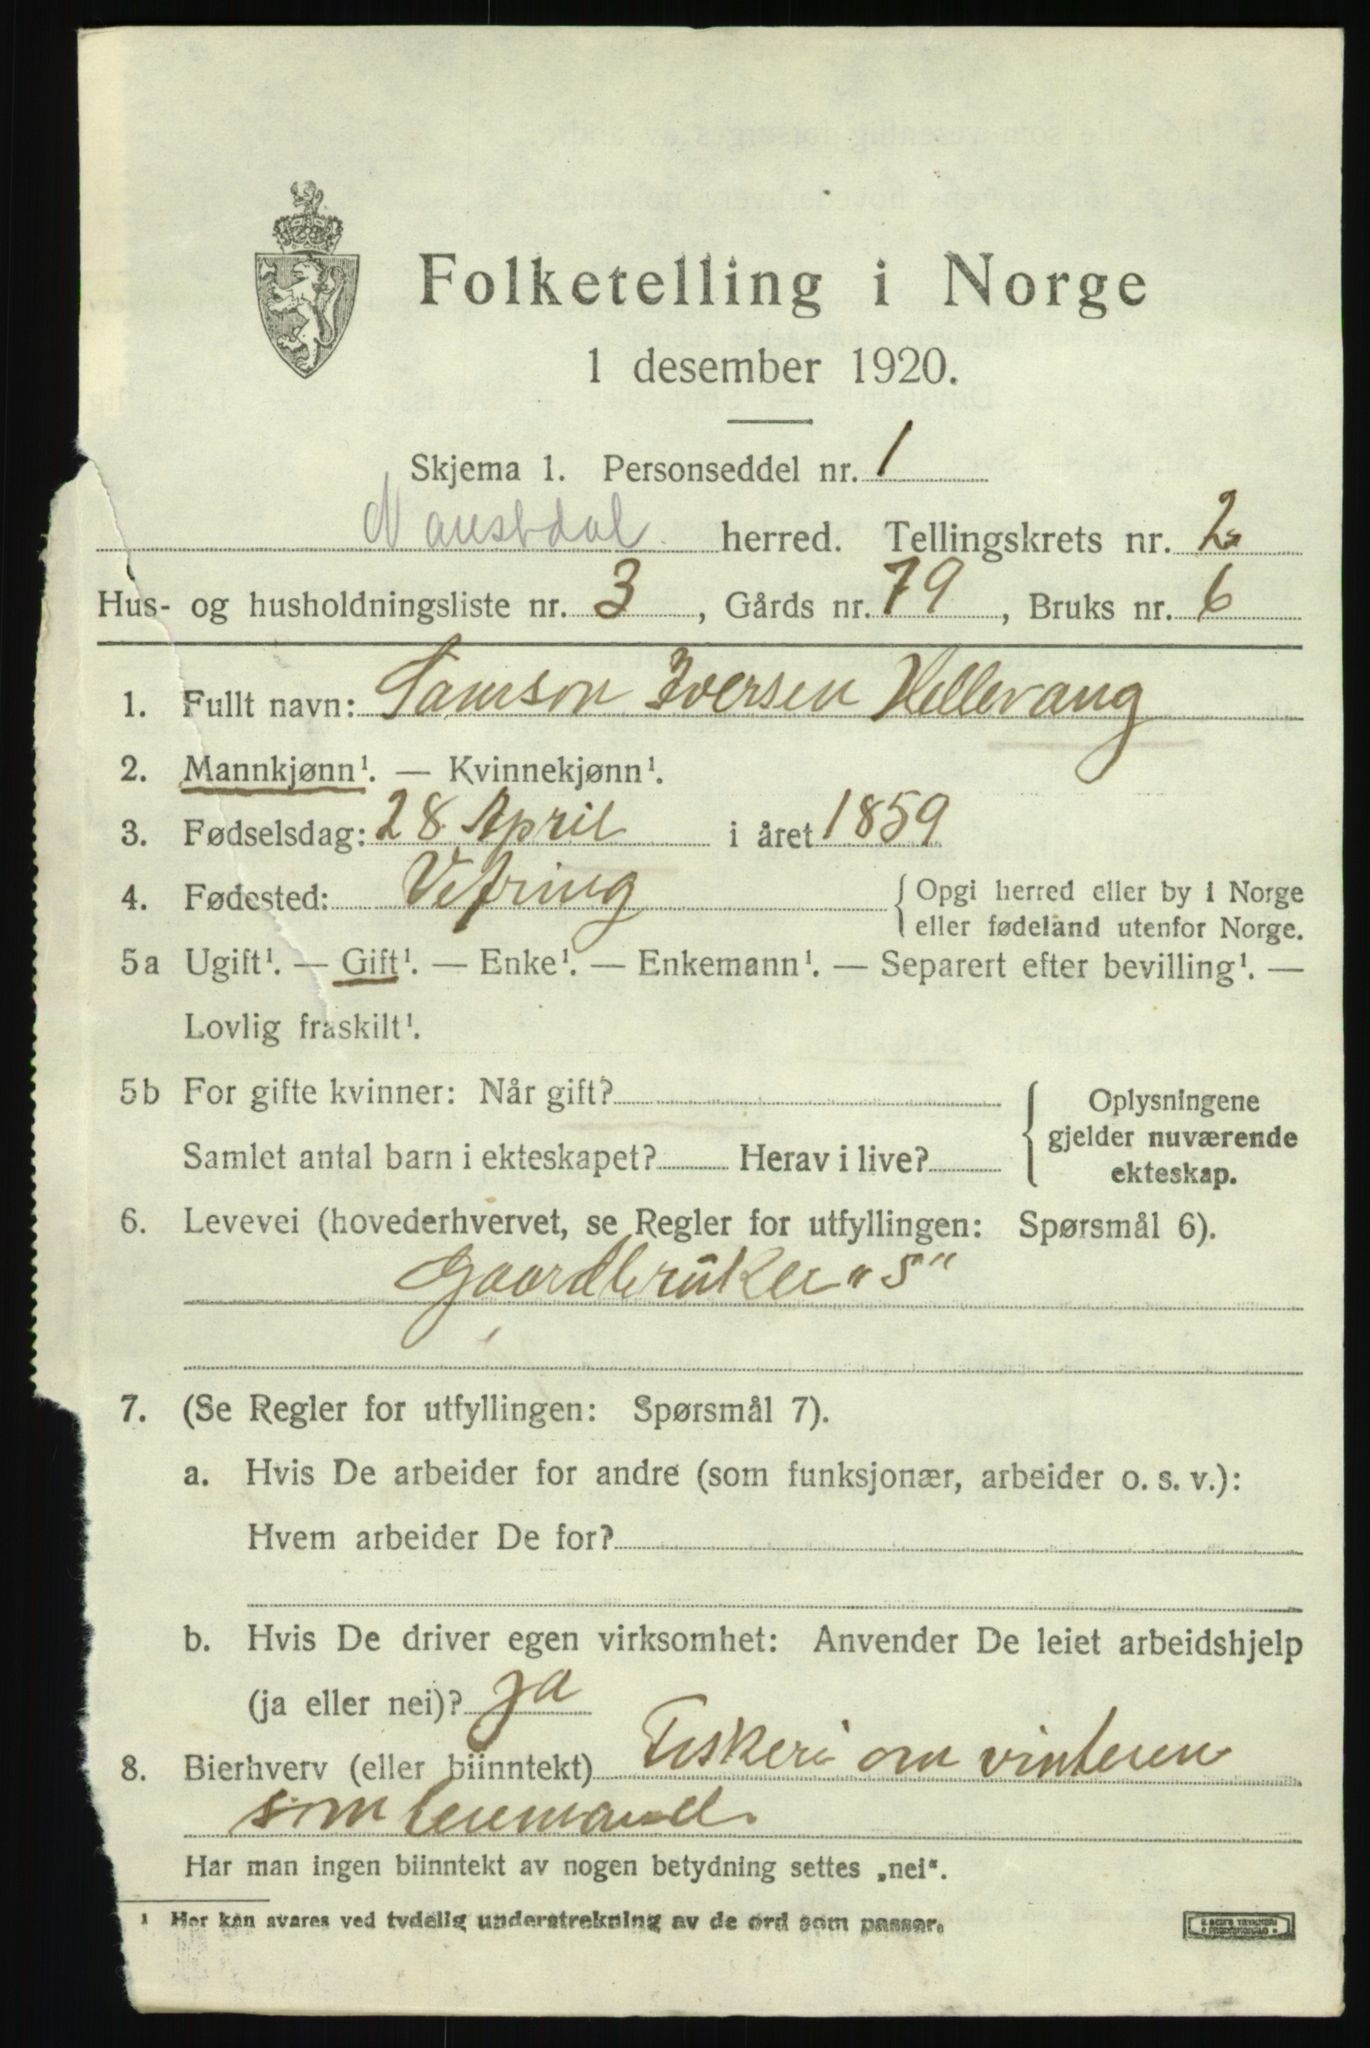 Folketelling i Norge
1 desember 1920.
Skjema 1. Personseddel nr. 1
Naustdal herred. Tellingskrets nr. 2
Hus- og husholdningsliste nr. 3, Gårds nr. 79, Bruks nr. 6
1. Fullt navn: Samson Iversen Hellevang
2. Mannkjønn¹. — Kvinnekjønn¹.
3. Fødselsdag: 28 April i året 1859
4. Fødested: Vefring { Opgi herred eller by i Norge
eller fødeland utenfor Norge.
5a Ugift¹. — Gift¹. — Enke¹. — Enkemann¹. — Separert efter bevilling¹. —
Lovlig fraskilt¹.
5b For gifte kvinner: Når gift?
Samlet antal barn i ekteskapet? Herav i live?
{ Oplysningene
gjelder nuværende
ekteskap.
6. Levevei (hovederhvervet, se Regler for utfyllingen: Spørsmål 6).
Gaardbrúker "S"
7. (Se Regler for utfyllingen: Spørsmål 7).
a. Hvis De arbeider for andre (som funksjonær, arbeider o. s. v.):
Hvem arbeider De for?
b. Hvis De driver egen virksomhet: Anvender De leiet arbeidshjelp
(ja eller nei)? ja
8. Bierhverv (eller biinntekt) Fiskeri om vinteren
som
Har man ingen biinntekt av nogen betydning settes „nei“.
¹ Her kan svares ved tydelig understrekning av de ord som passer.